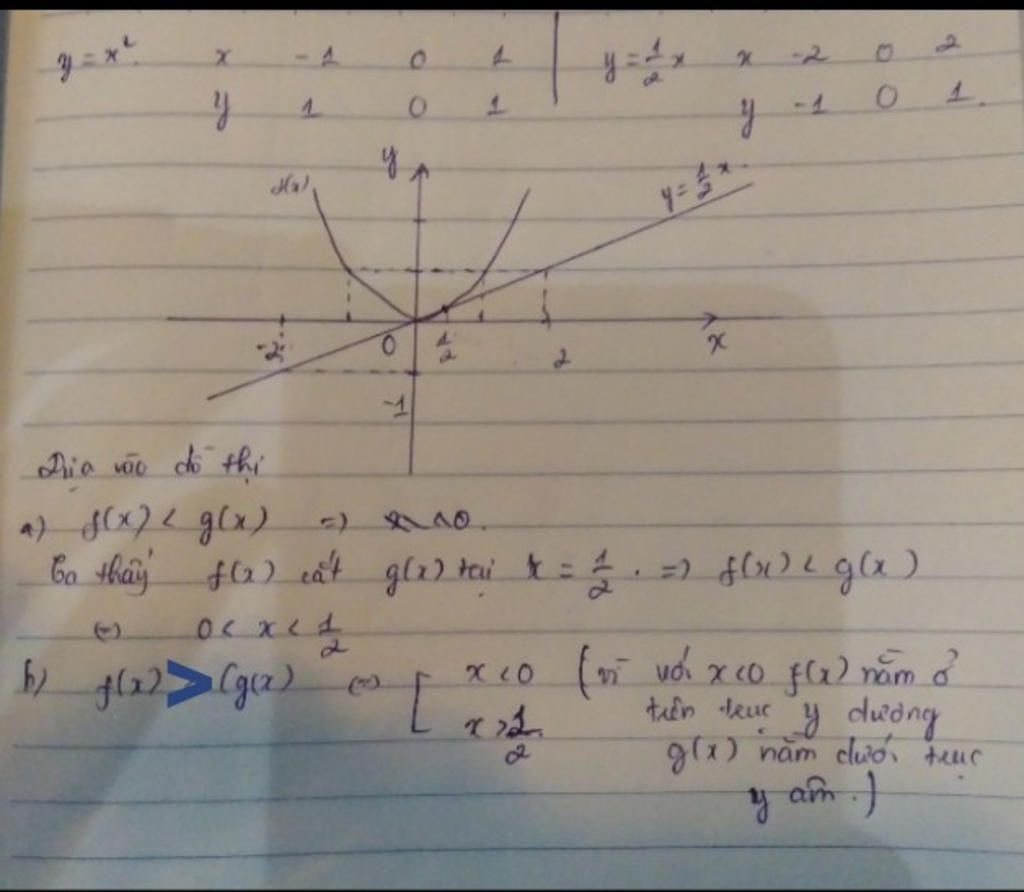 y = x² x -1 0 1 y = 1/2 x x -2 0 2
y 1 0 1 y -1 0 1
y
f(x) y = 1/2 x
-2 0 1/2 2 x
-1
Dựa vào đồ thị
a) f(x) < g(x) =>
Ta thấy f(x) cắt g(x) tại x = 1/2 . => f(x) < g(x)
(=) 0 < x < 1/2
b) f(x) > (g(x) (=) [ x < 0 (vì với x<0 f(x) nằm ở
x > 1/2 trên trục y dương
g(x) nằm dưới trục
y âm.)